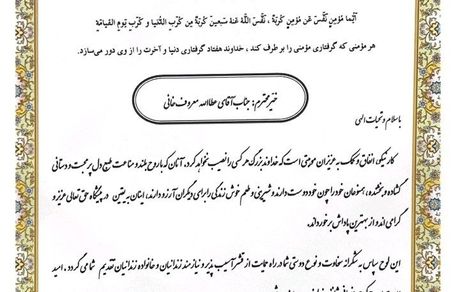 أَیُّما مُؤمِنٍ نَفَّسَ عَن مُؤمِنٍ کُربَةً ، نَفَّسَ اللّهُ عَنهُ سَبعینَ کُربَةً مِن کُرَبِ الدُّنیا و کُرَبِ یَومِ القیامَةِ
هر مؤمنی که گرفتاری مؤمنی را بر طرف کند ، خداوند هفتاد گرفتاری دنیا و آخرت را از وی دور می‌سازد.
خیر محترم: جناب آقای عطااله معروف خانی
با سلام و تحیات الهی
کار نیکو، انفاق و کمک به عزیزان موهبتی است که خداوند بزرگ هر کسی را نصیب نخواهد کرد. آنان که با روح بلند و مناعت طبع دل پر محبت و دستانی
گشاده و بخشنده، همنوعان خود را چون خود دوست دارند و شیرینی و طعم خوش زندگی را برای دیگران آرزو دارند، اینان به یقین در پیشگاه حق تعالی عزیز و
گرامی اند و از بهترین پاداش برخوردارند.
این لوح سپاس به شکرانه سخاوت و نوع دوستی شما در راه حمایت از قشر آسیب پذیر و نیازمند زندانیان و خانواده زندانیان تقدیم شما می گردد. امید